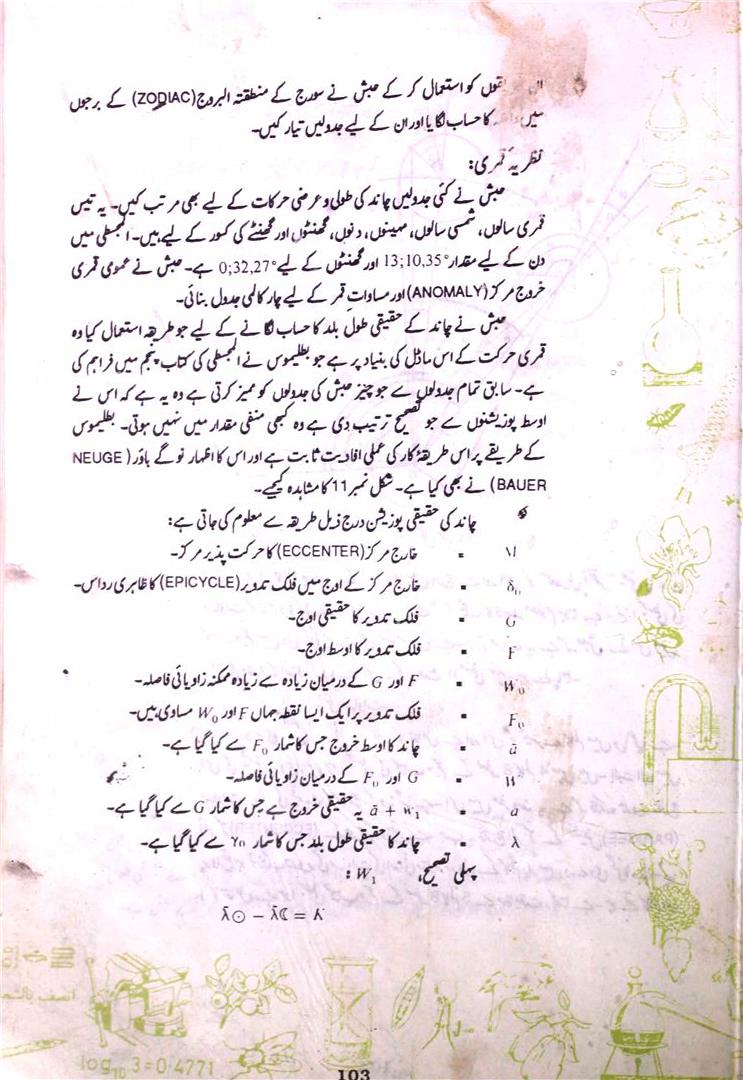 قوں کو استعمال کر کے حبش نے سورج کے منطقتہ البروج (ZODIAC) کے برجوں
میں کا حساب لگایا اور ان کے لیے جدولیں تیار کیں۔
نظریۂ قمری:
حبش نے کئی جدولیں چاند کی طولی و عرضی حرکات کے لیے بھی مرتب کیں۔ یہ تیس
قمری سالوں، شمسی سالوں، مہینوں، دنوں، گھنٹوں اور گھنٹے کی کسور کے لیے ہیں۔ المجسطی میں
دن کے لیے مقدار °13;10,35 اور گھنٹوں کے لیے °0;32,27 ہے۔ حبش نے عمومی قمری
خروج مرکز (ANOMALY) اور مساواتِ قمر کے لیے چار کالمی جدول بنائی۔
حبش نے چاند کے حقیقی طول بلد کا حساب لگانے کے لیے جو طریقہ استعمال کیا وہ
قمری حرکت کے اس ماڈل کی بنیاد پر ہے جو بطلیموس نے المجسطی کی کتاب پنجم میں فراہم کی
ہے۔ سابق تمام جدولوں سے جو چیز حبش کی جدولوں کو ممیز کرتی ہے وہ یہ ہے کہ اس نے
اوسط پوزیشنوں سے جو تصحیح ترتیب دی ہے وہ کبھی منفی مقدار میں نہیں ہوتی۔ بطلیموس
کے طریقے پر اس طریقۂ کار کی عملی افادیت ثابت ہے اور اس کا اظہار نوگے باؤر (NEUGE
BAUER) نے بھی کیا ہے۔ شکل نمبر 11 کا مشاہدہ کیجیے۔
چاند کی حقیقی پوزیشن درج ذیل طریقہ سے معلوم کی جاتی ہے:
M = خارج مرکز (ECCENTER) کا حرکت پذیر مرکز۔
δ₀ = خارج مرکز کے اوج میں فلک تدویر (EPICYCLE) کا ظاہری رداس۔
G = فلک تدویر کا حقیقی اوج۔
F = فلک تدویر کا اوسط اوج۔
W₀ = F اور G کے درمیان زیادہ سے زیادہ ممکنہ زاویائی فاصلہ۔
F₀ = فلک تدویر پر ایک ایسا نقطہ جہاں F اور W₀ مساوی ہیں۔
ā = چاند کا اوسط خروج جس کا شمار F₀ سے کیا گیا ہے۔
W = G اور F₀ کے درمیان زاویائی فاصلہ۔
a = ā + w₁ یہ حقیقی خروج ہے جس کا شمار G سے کیا گیا ہے۔
λ = چاند کا حقیقی طول بلد جس کا شمار γ₀ سے کیا گیا ہے۔
پہلی تصحیح، W₁ :
λ̄☉ − λ̄☾ = K
log₁₀ 3=0·4771
103